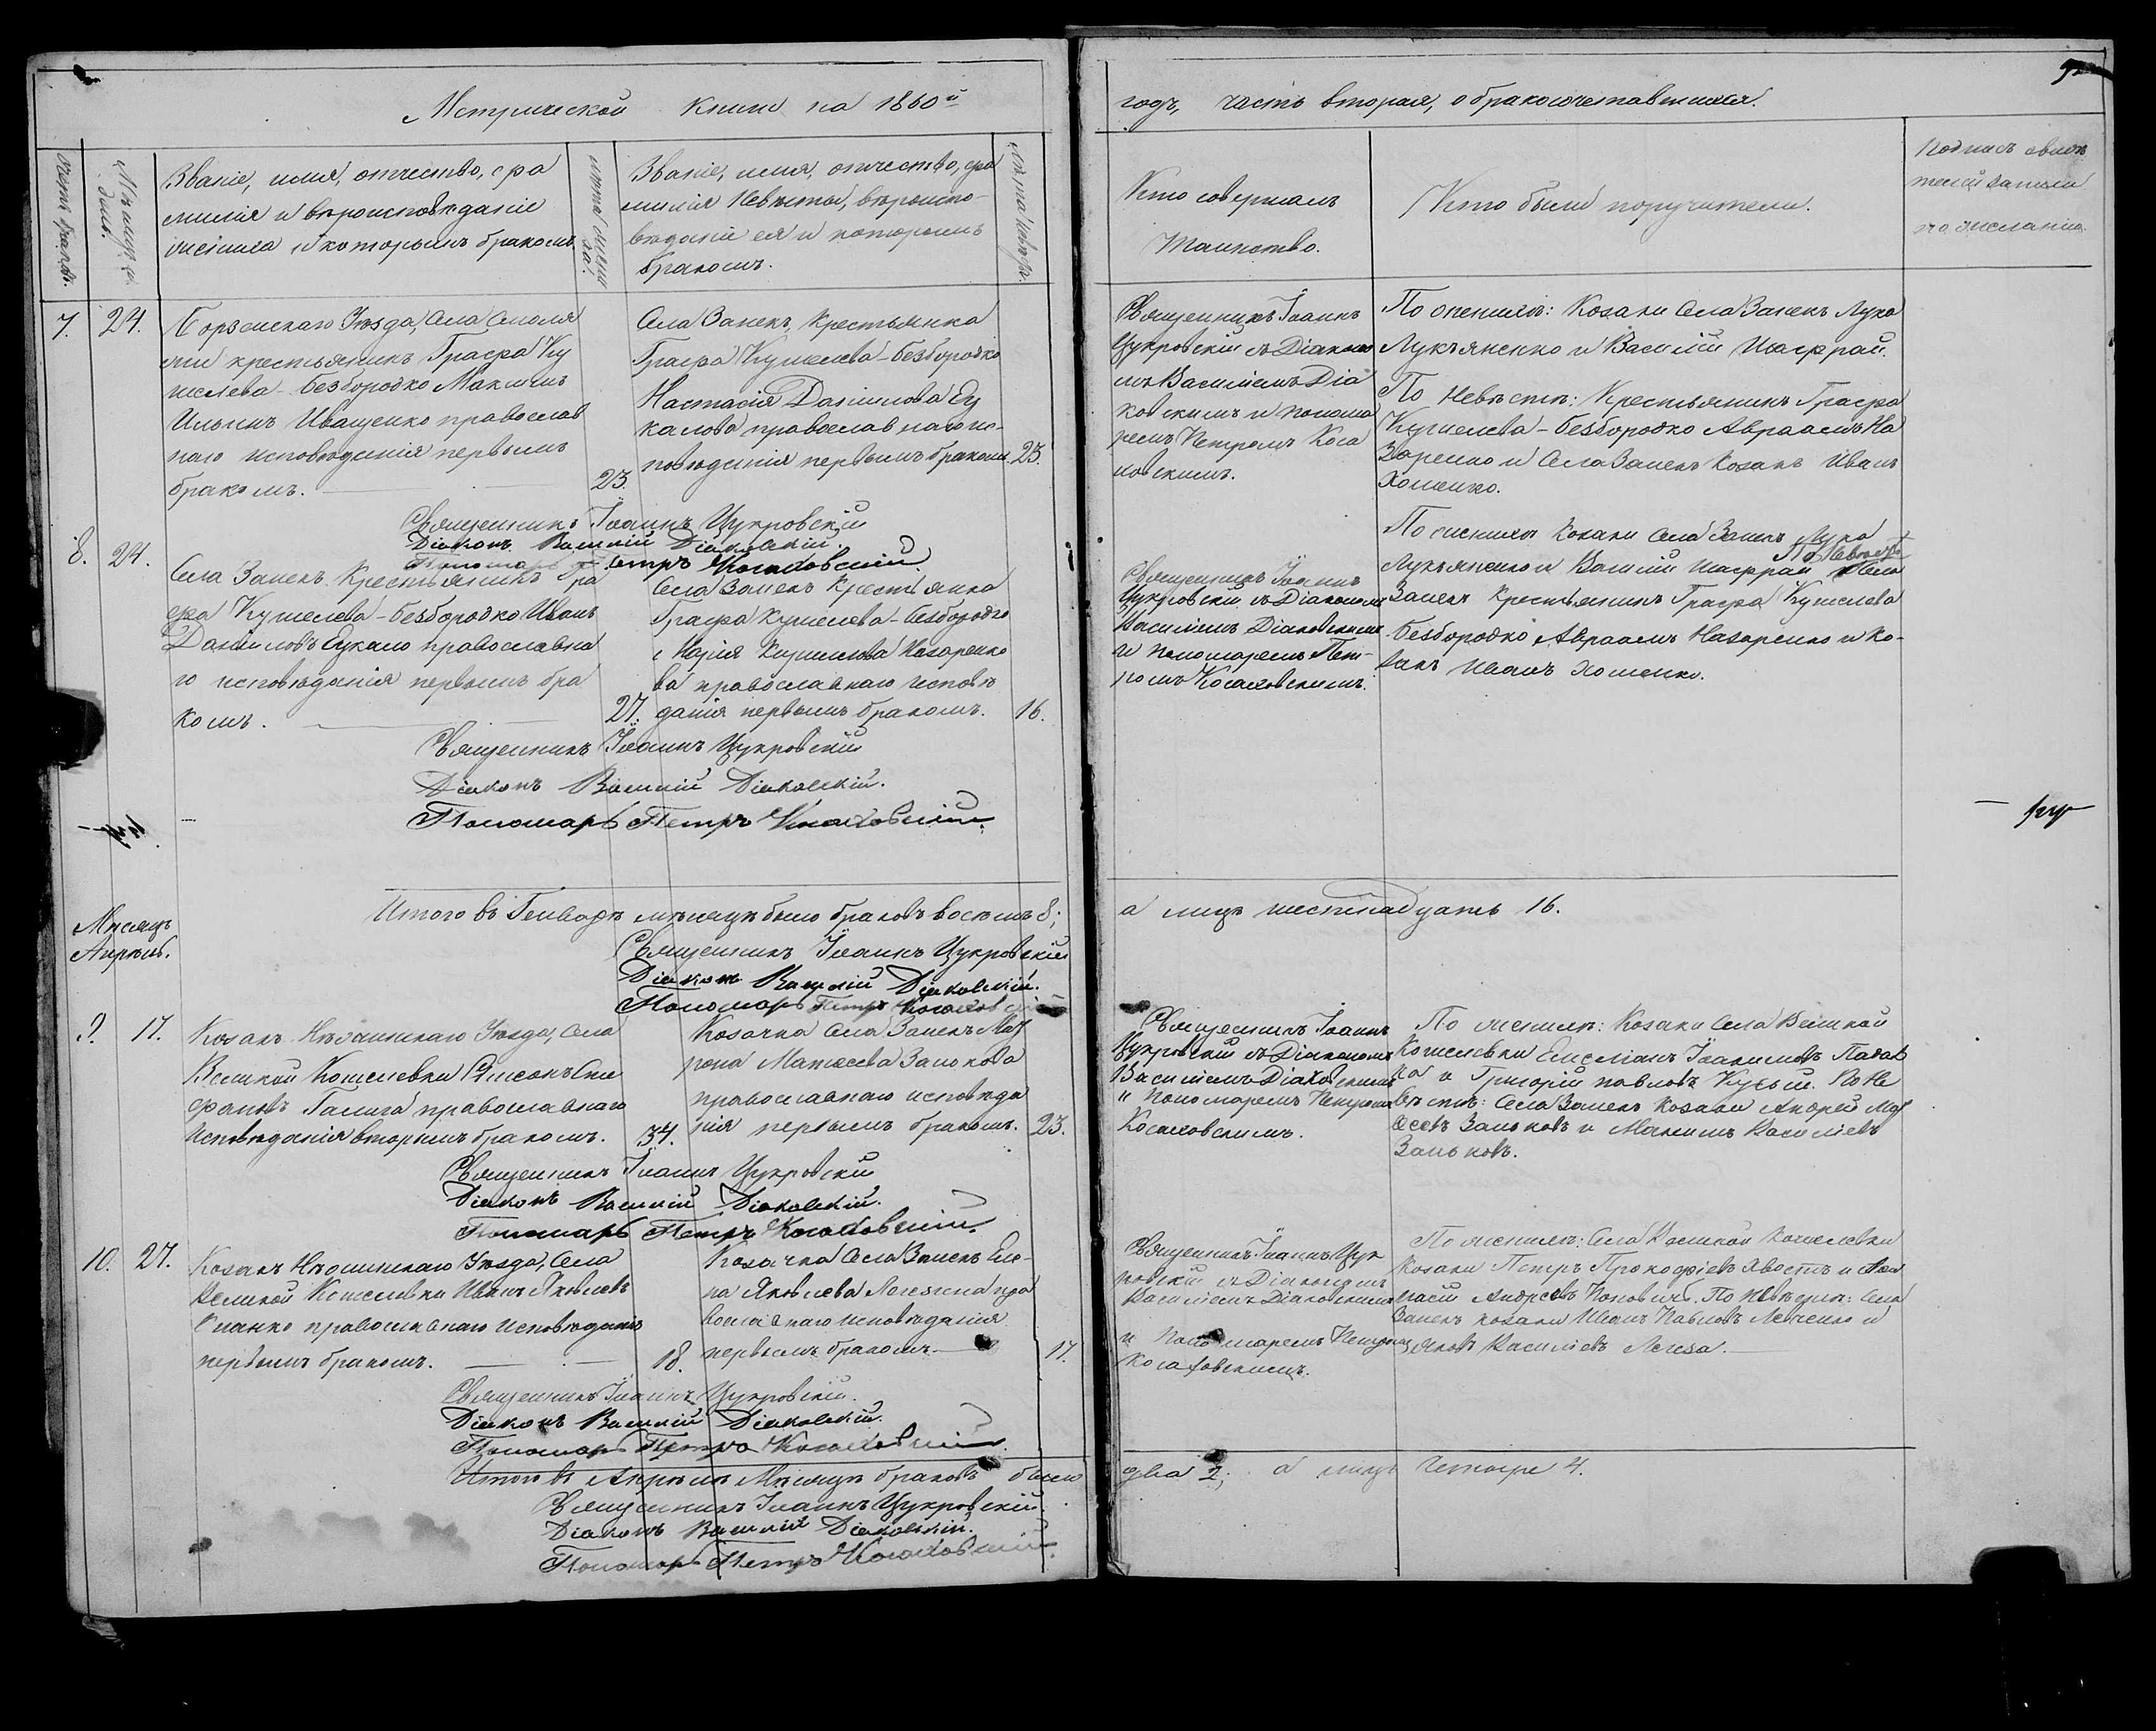 Метрической книги на 1860й
годъ, часть вторая, о бракосочетавшихся.
Счетъ браковъ.
Мѣсяцъ и день.
Званіе, имя, отчество, фа
милія и вѣроисповѣданіе
жениха и которымъ бракомъ
Лѣта жени
ха.
Званіе, имя, отчество, фа
милія Невѣсты, вѣроиспо-
вѣданіе ея и которымъ
бракомъ.
Лѣта невѣсты.
Кто совершалъ
Таинство.
Кто были поручители.
Подпись свидѣ
телей записи
по желанію.
7. 24.
Борзенскаго Уѣзда, Села
крестьянинъ Графа Ку
шелева-Безбородко Максимъ
Ильинъ Иващенко православ
наго исповѣданія первымъ
бракомъ. 23.
Села Занекъ, Крестьянка
Графа Кушелева-Безбородко
Настасія Даніилова
православнаго ис-
повѣданія первымъ бракомъ. 23.
Священникъ Іоаннъ
Цукровскій съ Діаконо
мъ Василіемъ Діа
ковскимъ и понома
ремъ Петромъ Коса
ковскимъ.
По женихѣ: Козаки Села Занекъ Лука
Лукъяненко и Василій Шафрай.
По Невѣстѣ: Крестьянинъ Графа
Кушелева-Безбородко Авраамъ На
заренко и Села Занекъ Козакъ Иванъ
Хоменко.
Священникъ Іоаннъ Цукровскій
Діаконъ Василій Діаковскій.
Пономарь Петръ Косаковскій
8. 24.
Села Занекъ Крестьянинъ Гра
фа Кушелева-Безбородко Иванъ
Даніиловъ православна
го исповѣданія первымъ бра
комъ. 27.
Села Занекъ Крестьянка
Графа Кушелева-Безбородко
Марія Кириллова Назаренко
ва православнаго исповѣ
данія первымъ бракомъ. 16.
Священникъ Іоаннъ
Цукровскій съ Діакономъ
Василіемъ Діаковскимъ
и пономаремъ Пет-
ромъ Косаковскимъ.
По женихѣ Козаки Села Занекъ Лука
Лукъяненко и Василій Шафрай По Невѣстѣ Села
Занекъ Крестьянинъ Графа Кушелева
Безбородко Авраамъ Назаренко и Ко-
закъ Иванъ Хоменко.
Священникъ Іоаннъ Цукровскій
Діаконъ Василій Діаковскій.
Пономарь Петръ Косаковскій.
Итого въ Генварѣ мѣсяцѣ было браковъ восемь 8;
а лицъ шестнадцать 16.
Священникъ Іоаннъ Цукровскій
Діаконъ Василій Діаковскій.
Пономарь Петръ Косаковскій
Мѣсяцъ
Апрѣль.
9. 17.
Козакъ Нѣжинскаго Уѣзда, Села
Великой Кошелевки Сте
фановъ православнаго
исповѣданія вторымъ бракомъ. 34.
Козачка Села Занекъ Мат
рона Матѳеева Занькова
православнаго исповѣда
нія первымъ бракомъ. 23.
Священникъ Іоаннъ
Цукровскій съ Діакономъ
Василіемъ Діаковскимъ
и Пономаремъ Петромъ
Косаковскимъ.
По женихѣ: Козаки Села Великой
Кошелевки Емеліанъ Іоакимовъ
и Григорій Павловъ По Не
вѣстѣ: Села Занекъ Козаки Андрей Мат
ѳеевъ Заньковъ и Максимъ Василіевъ
Заньковъ.
Священникъ Іоаннъ Цукровскій
Діаконъ Василій Діаковскій.
Пономарь Петръ Косаковскій.
10. 27.
Козакъ Нѣжинскаго Уѣзда, Села
Великой Кошелевки Иванъ Яковлевъ
православнаго исповѣданія
первымъ бракомъ. 18.
Козачка Села Занекъ Еле-
на Яковлева пра
вославнаго исповѣданія
первымъ бракомъ. 17.
Священникъ Іоаннъ Цук
ровскій съ Діакономъ
Василіемъ Діаковскимъ
и Пономаремъ Петромъ
Косаковскимъ.
По женихѣ: Села Великой Кошелевки
Козаки Петръ Прокофіевъ Хвостъ и
Андреевъ По Невѣстѣ: Села
Занекъ козаки Иванъ Павловъ и
Яковъ Василіевъ
Священникъ Іоаннъ Цукровскій.
Діаконъ Василій Діаковскій.
Пономарь Петръ Косаковскій.
Итого въ Апрѣлѣ Мѣсяцѣ браковъ было
два 2; а лицъ четыре 4.
Священникъ Іоаннъ Цукровскій.
Діаконъ Василій Діаковскій.
Пономарь Петръ Косаковскій.